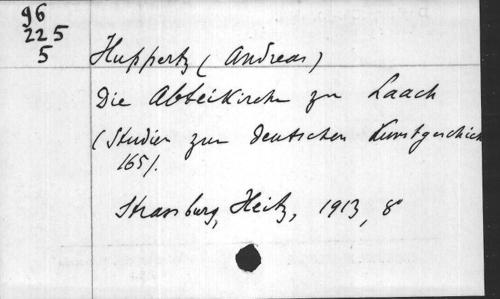 96
225
5
Huppertz (Andreas)
Die Abteikirche zu Laach
(Studien zur deutschen Kunstgeschich
165).
Strassburg, Heitz, 1913, 8°